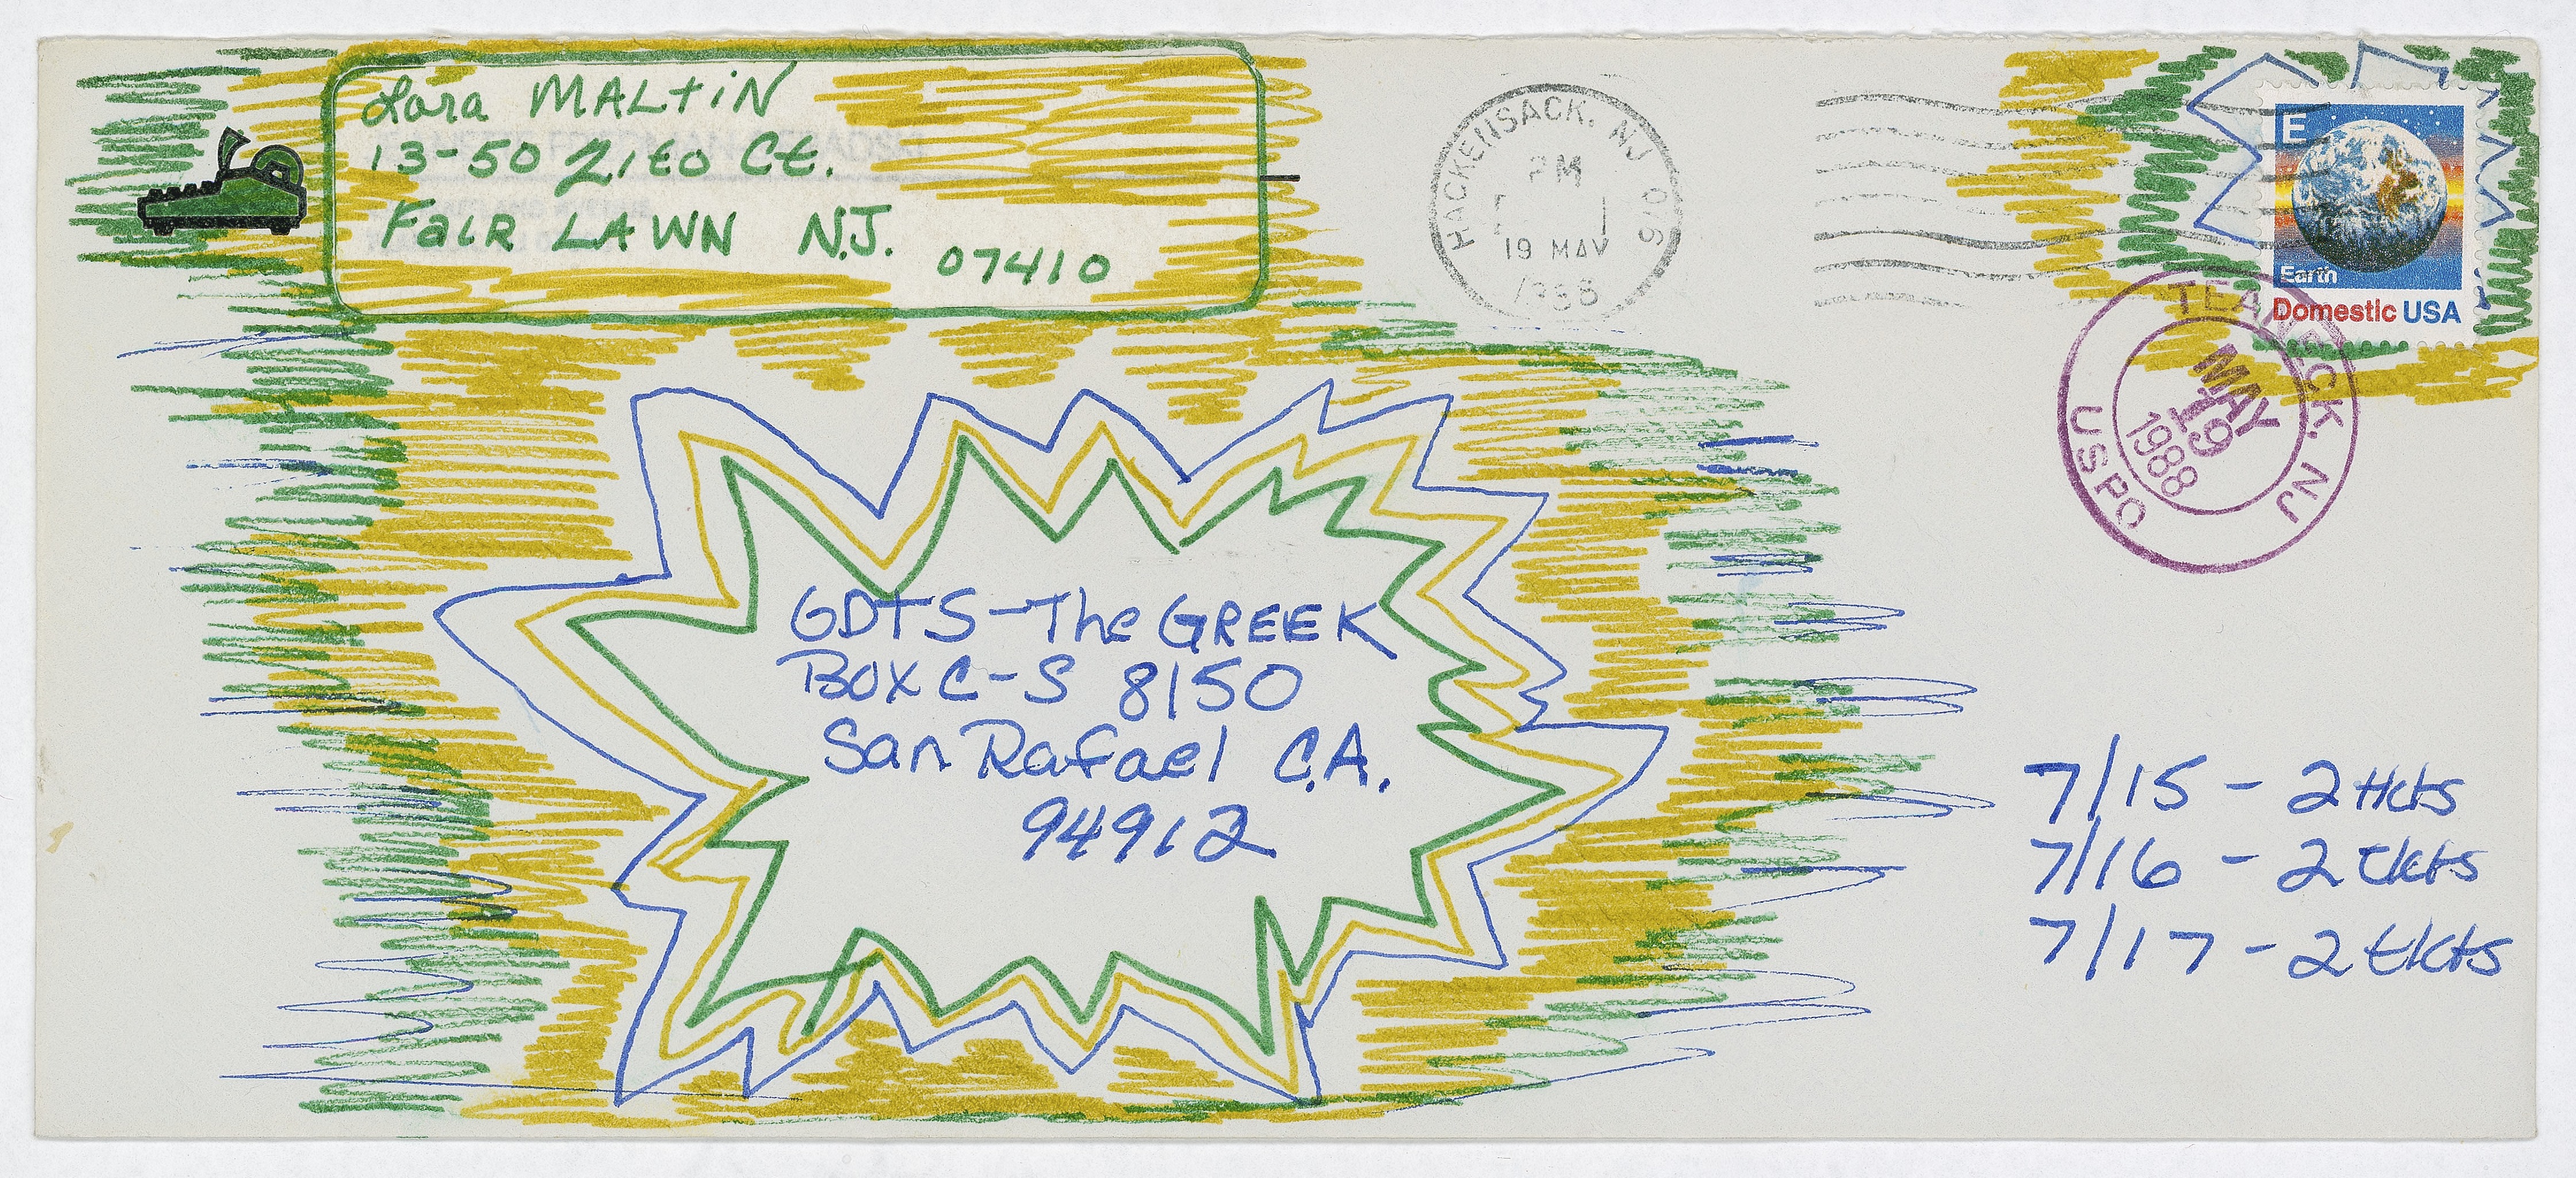 Lara MALTIN
13-50 Zito Ct.
FaiR LAWN N.J. 07410
HACKENSACK, NJ 076
PM
19 MAY
1988
E
Earth
Domestic USA
TEANECK, NJ
MAY
19
1988
USPO
GDTS-The GREEK
Box C-S 8150
San Rafael C.A.
94912
7/15 - 2 tkts
7/16 - 2 tkts
7/17 - 2 tkts